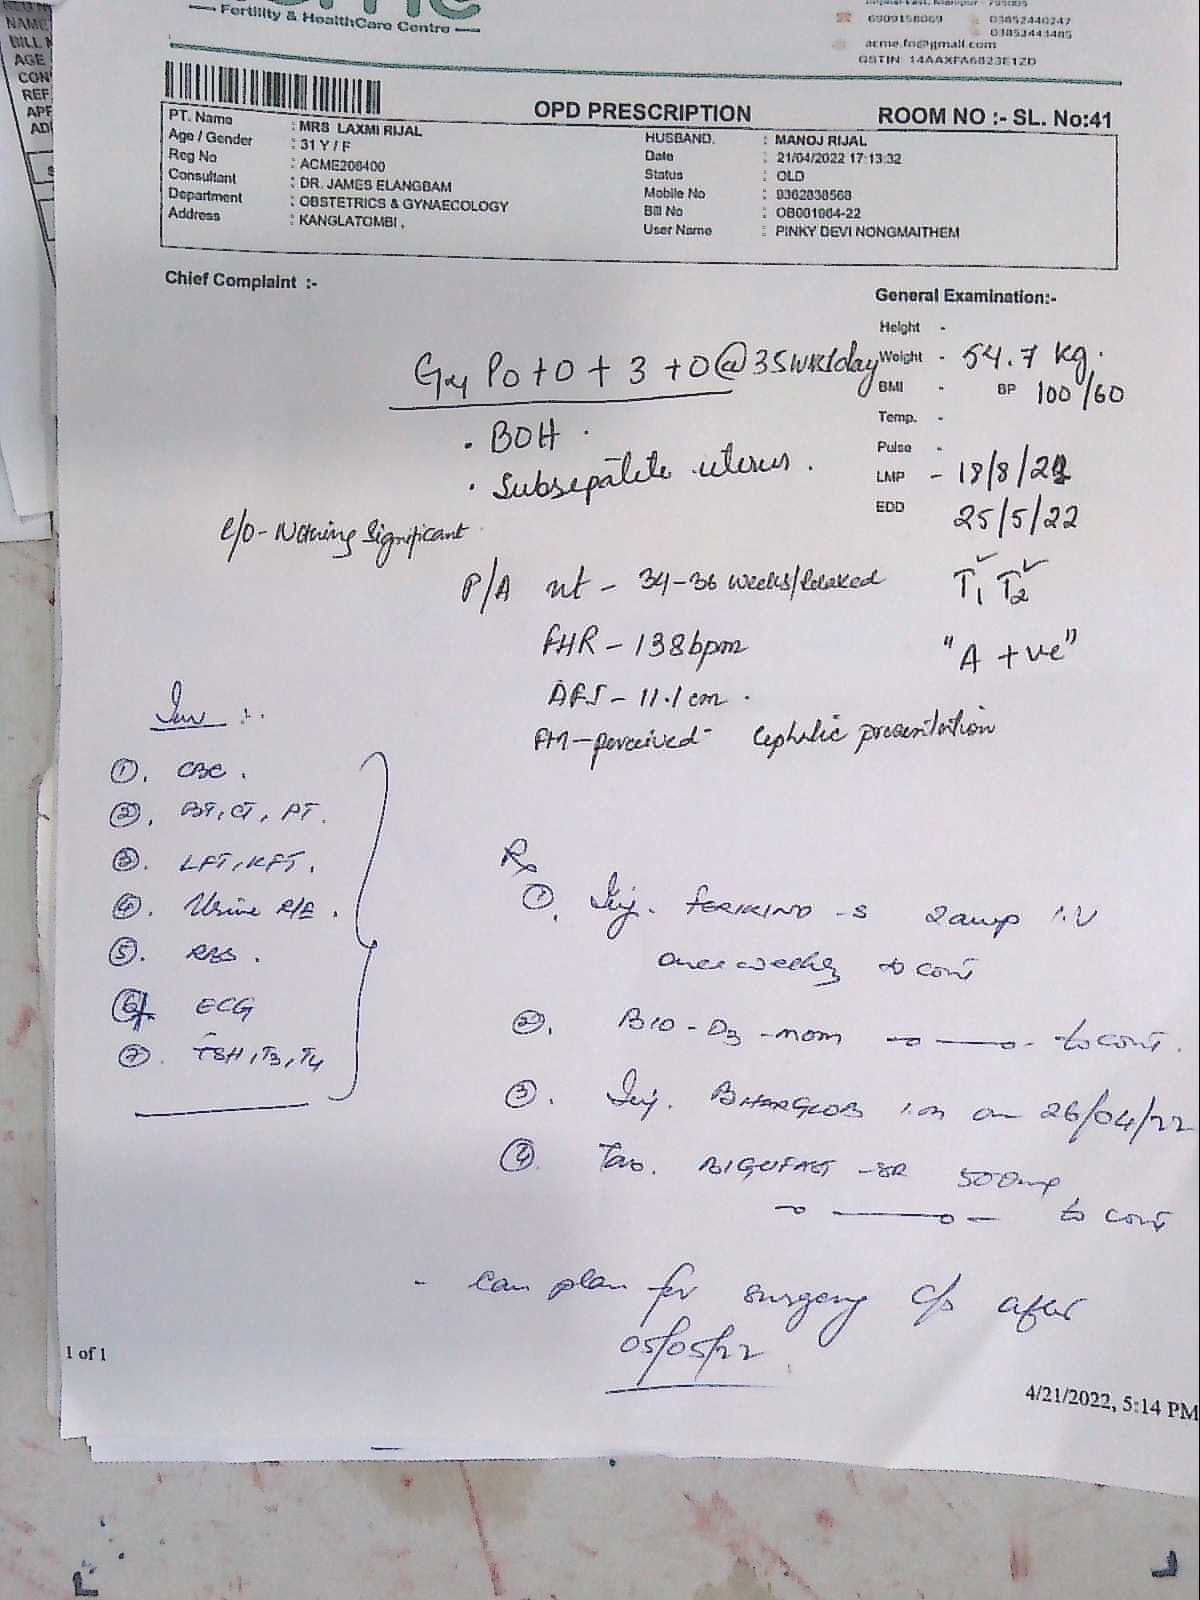 Fertility & HealthCare Centre
6909158069 03852440247
03852443485
acme.fo@gmail.com
GSTIN: 14AAXFA6823E1ZD
NAME
BILL
AGE
CON
REF
APP
AD
OPD PRESCRIPTION ROOM NO :- SL. No:41
PT. Name : MRS LAXMI RIJAL HUSBAND. : MANOJ RIJAL
Age / Gender : 31 Y / F Date : 21/04/2022 17:13:32
Reg No : ACME206400 Status : OLD
Consultant : DR. JAMES ELANGBAM Mobile No : 9362838568
Department : OBSTETRICS & GYNAECOLOGY Bill No : OB001064-22
Address : KANGLATOMBI , User Name : PINKY DEVI NONGMAITHEM
Chief Complaint :-
General Examination:-
Height -
G4 P0+0+3+0@35wks/day Weight - 54.7 kg.
BMI - BP 100/60
Temp. -
. BOH . Pulse -
. Subseptate uterus . LMP - 18/8/21
EDD 25/5/22
C/O - Nothing Significant
P/A ut - 34-36 weeks/relaxed T1 ✓ T2 ✓
FHR - 138bpm "A +ve"
AFI - 11.1 cm .
FM - perceived Cephalic presentation
Inv :.
①. CBC .
②. BT, CT, PT.
③. LFT, KFT.
④. Urine R/E .
⑤. RBS .
⑥. ECG
⑦. TSH, T3, T4
Rx
①. Inj. FERIKIND -S 2amp I.V
once weekly to cont
②. BIO-D3-mom to cont.
③. Inj. BHARGLOB I.M on 26/04/22
④. Tab. BIGUFAST -SR 500mg
to cont
- can plan for surgery c/s after
05/05/22
1 of 1
4/21/2022, 5:14 PM